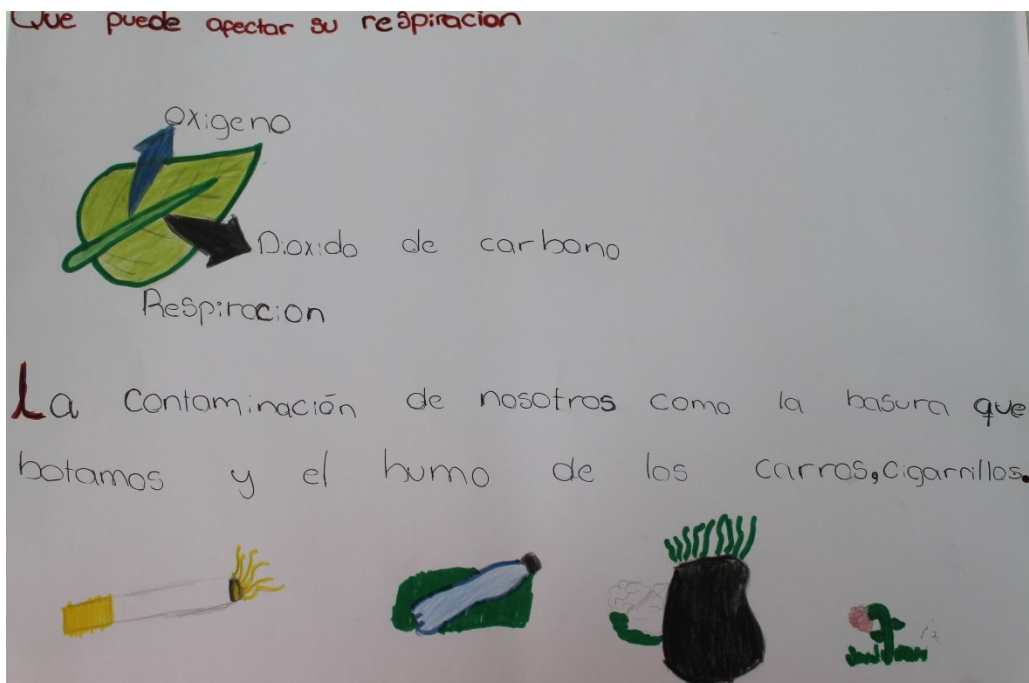 Que puede afectar su respiracion
Oxigeno
Dioxido de carbono
Respiracion
La contaminación de nosotros como la basura que
botamos y el humo de los carros, cigarrillos.